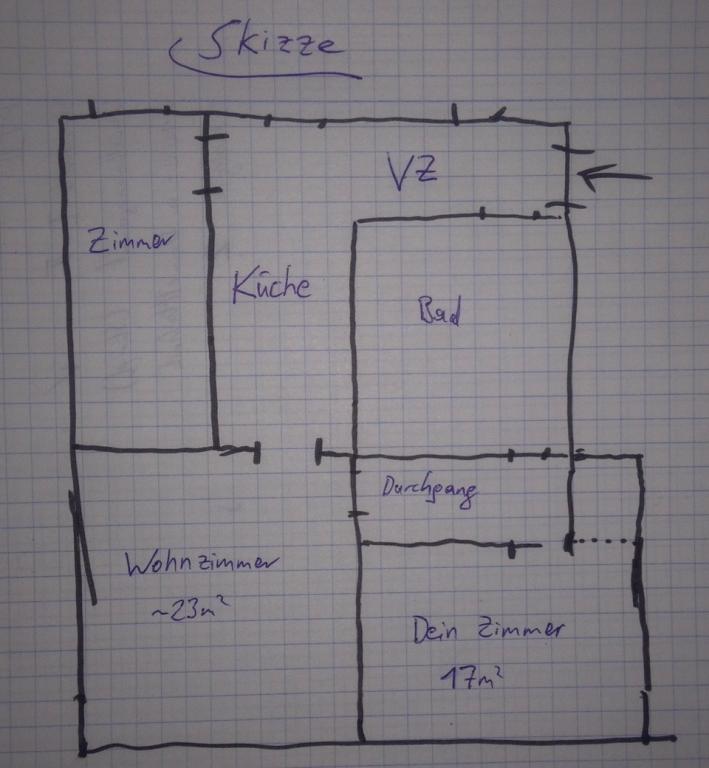 Skizze
VZ
Zimmer
Küche
Bad
Durchgang
Wohnzimmer
~23m²
Dein Zimmer
17m²